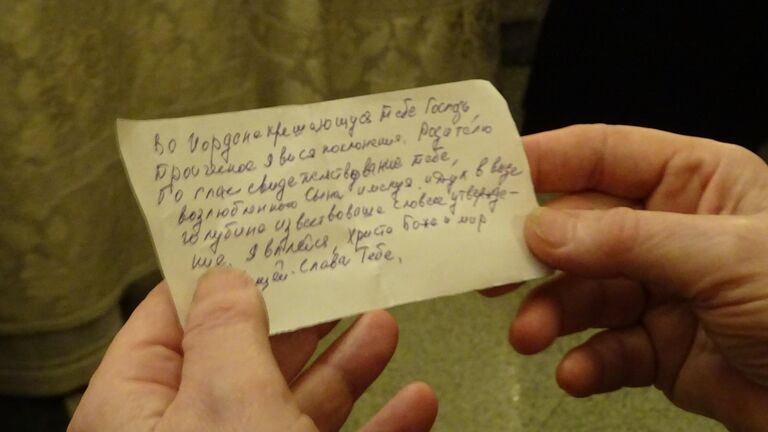 Во Иордане крещающуся Тебе Господь
Троическое Явися поклонение. Родителю
бо глас свидетельствование Тебе,
возлюбленного Сына именуя. и дух в виде
голубине известоваше словесе утвержде-
ние. Явлейся, Христе Боже и мир
щей. слава Тебе,